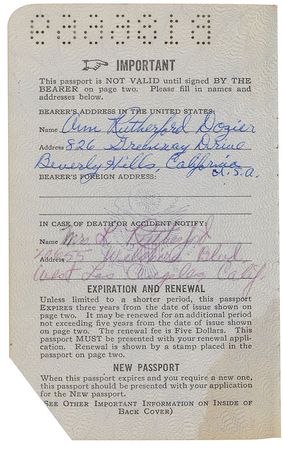 IMPORTANT
This passport is NOT VALID until signed BY THE
BEARER on page two. Please fill in names and
addresses below.
BEARER'S ADDRESS IN THE UNITED STATES:
Name Ann Rutherford Dozier
Address 826 Greenway Drive
Beverly Hills, California
U.S.A.
BEARER'S FOREIGN ADDRESS:
IN CASE OF DEATH OR ACCIDENT NOTIFY:
Name Mrs L. Rutherford
Address Wilshire Blvd
West Los Angeles Calif
EXPIRATION AND RENEWAL
Unless limited to a shorter period, this passport
EXPIRES three years from the date of issue shown
on page two. It may be renewed for an additional period
not exceeding five years from the date of issue shown
on page two. The renewal fee is Five Dollars. This
passport MUST be presented with your renewal appli-
cation. Renewal is shown by a stamp placed in the
passport on page two.
NEW PASSPORT
When this passport expires and you require a new one,
this passport should be presented with your application
for the NEW passport.
(SEE OTHER IMPORTANT INFORMATION ON INSIDE OF
BACK COVER)